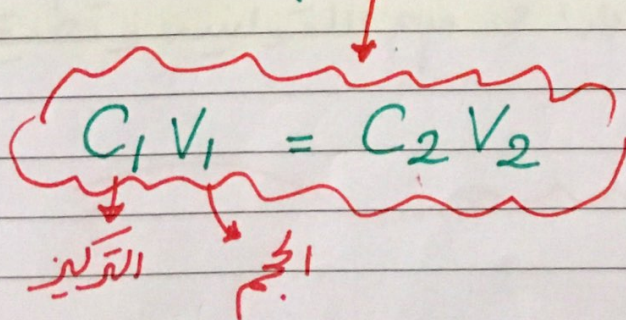 C₁ V₁ = C₂ V₂
التركيز
الحجم